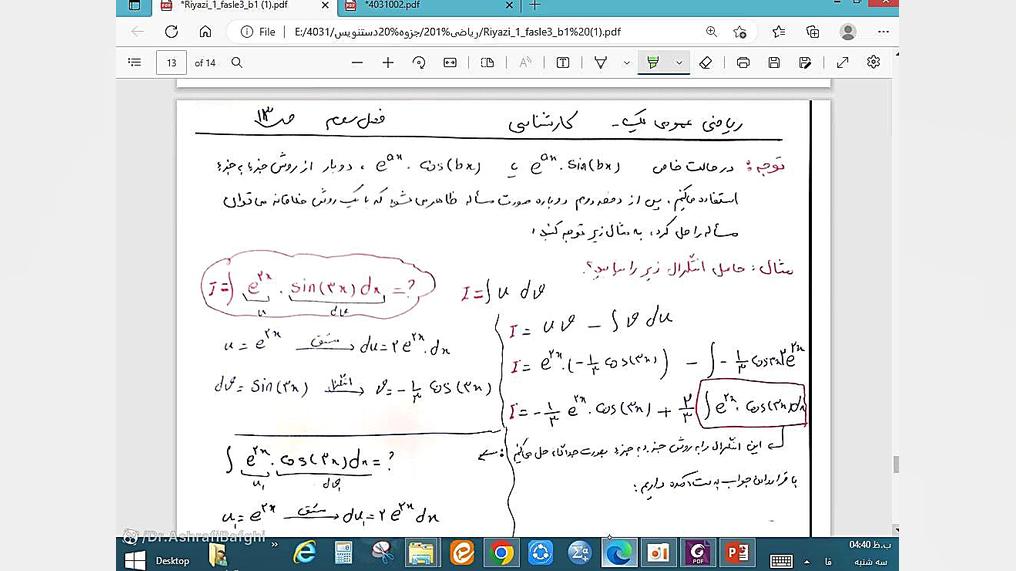 *Riyazi_1_fasle3_b1 (1).pdf
*4031002.pdf
File
E:/4031/جزوه%20دستنویس/ریاضی%201/Riyazi_1_fasle3_b1%20(1).pdf
13 of 14
ریاضی عمومی یک - کارشناسی فصل سوم ص ۱۳
توجه: در حالت خاص e^{ax}.sin(bx) یا e^{ax}.cos(bx) ، دوبار از روش جزء به جزء
استفاده میکنیم. پس از دفعه دوم دوباره صورت مسأله ظاهر می شود که با یک روش خلاقانه می توان
مسأله را حل کرد، به مثال زیر توجه کنید:
مثال: حاصل انتگرال زیر را بیابید؟
I=∫ e^{۲x} . sin(۳x) dx = ?
u dv
u = e^{۲x} مشتق du = ۲e^{۲x}.dx
dv = sin(۳x) انتگرال v = -۱/۳ cos(۳x)
I=∫ u dv
I = uv - ∫ v du
I = e^{۲x}.(-۱/۳ cos(۳x)) - ∫ -۱/۳ cos۳x ۲e^{۲x}
I = -۱/۳ e^{۲x}.cos(۳x) + ۲/۳ ∫ e^{۲x}.cos(۳x)dx
این انتگرال را به روش جزء به جزء بصورت جداگانه حل میکنیم:
با قرار دادن جواب به دست آمده داریم:
∫ e^{۲x}.cos(۳x)dx = ?
u₁ dv₁
u₁ = e^{۲x} مشتق du₁ = ۲e^{۲x}dx
/Dr.AshrafiBafghi
Desktop
فا
04:40 ب.ظ
سه شنبه